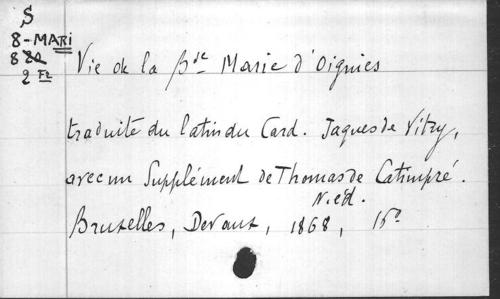 S
8-MARI
8
2 Fz
Vie de la Bse Marie d'Oignies
traduite du latin du Card. Jaques de Vitry,
avec un Supplément de Thomas de Catimpré.
N. éd.
Bruxelles, Devaux, 1868, 15°